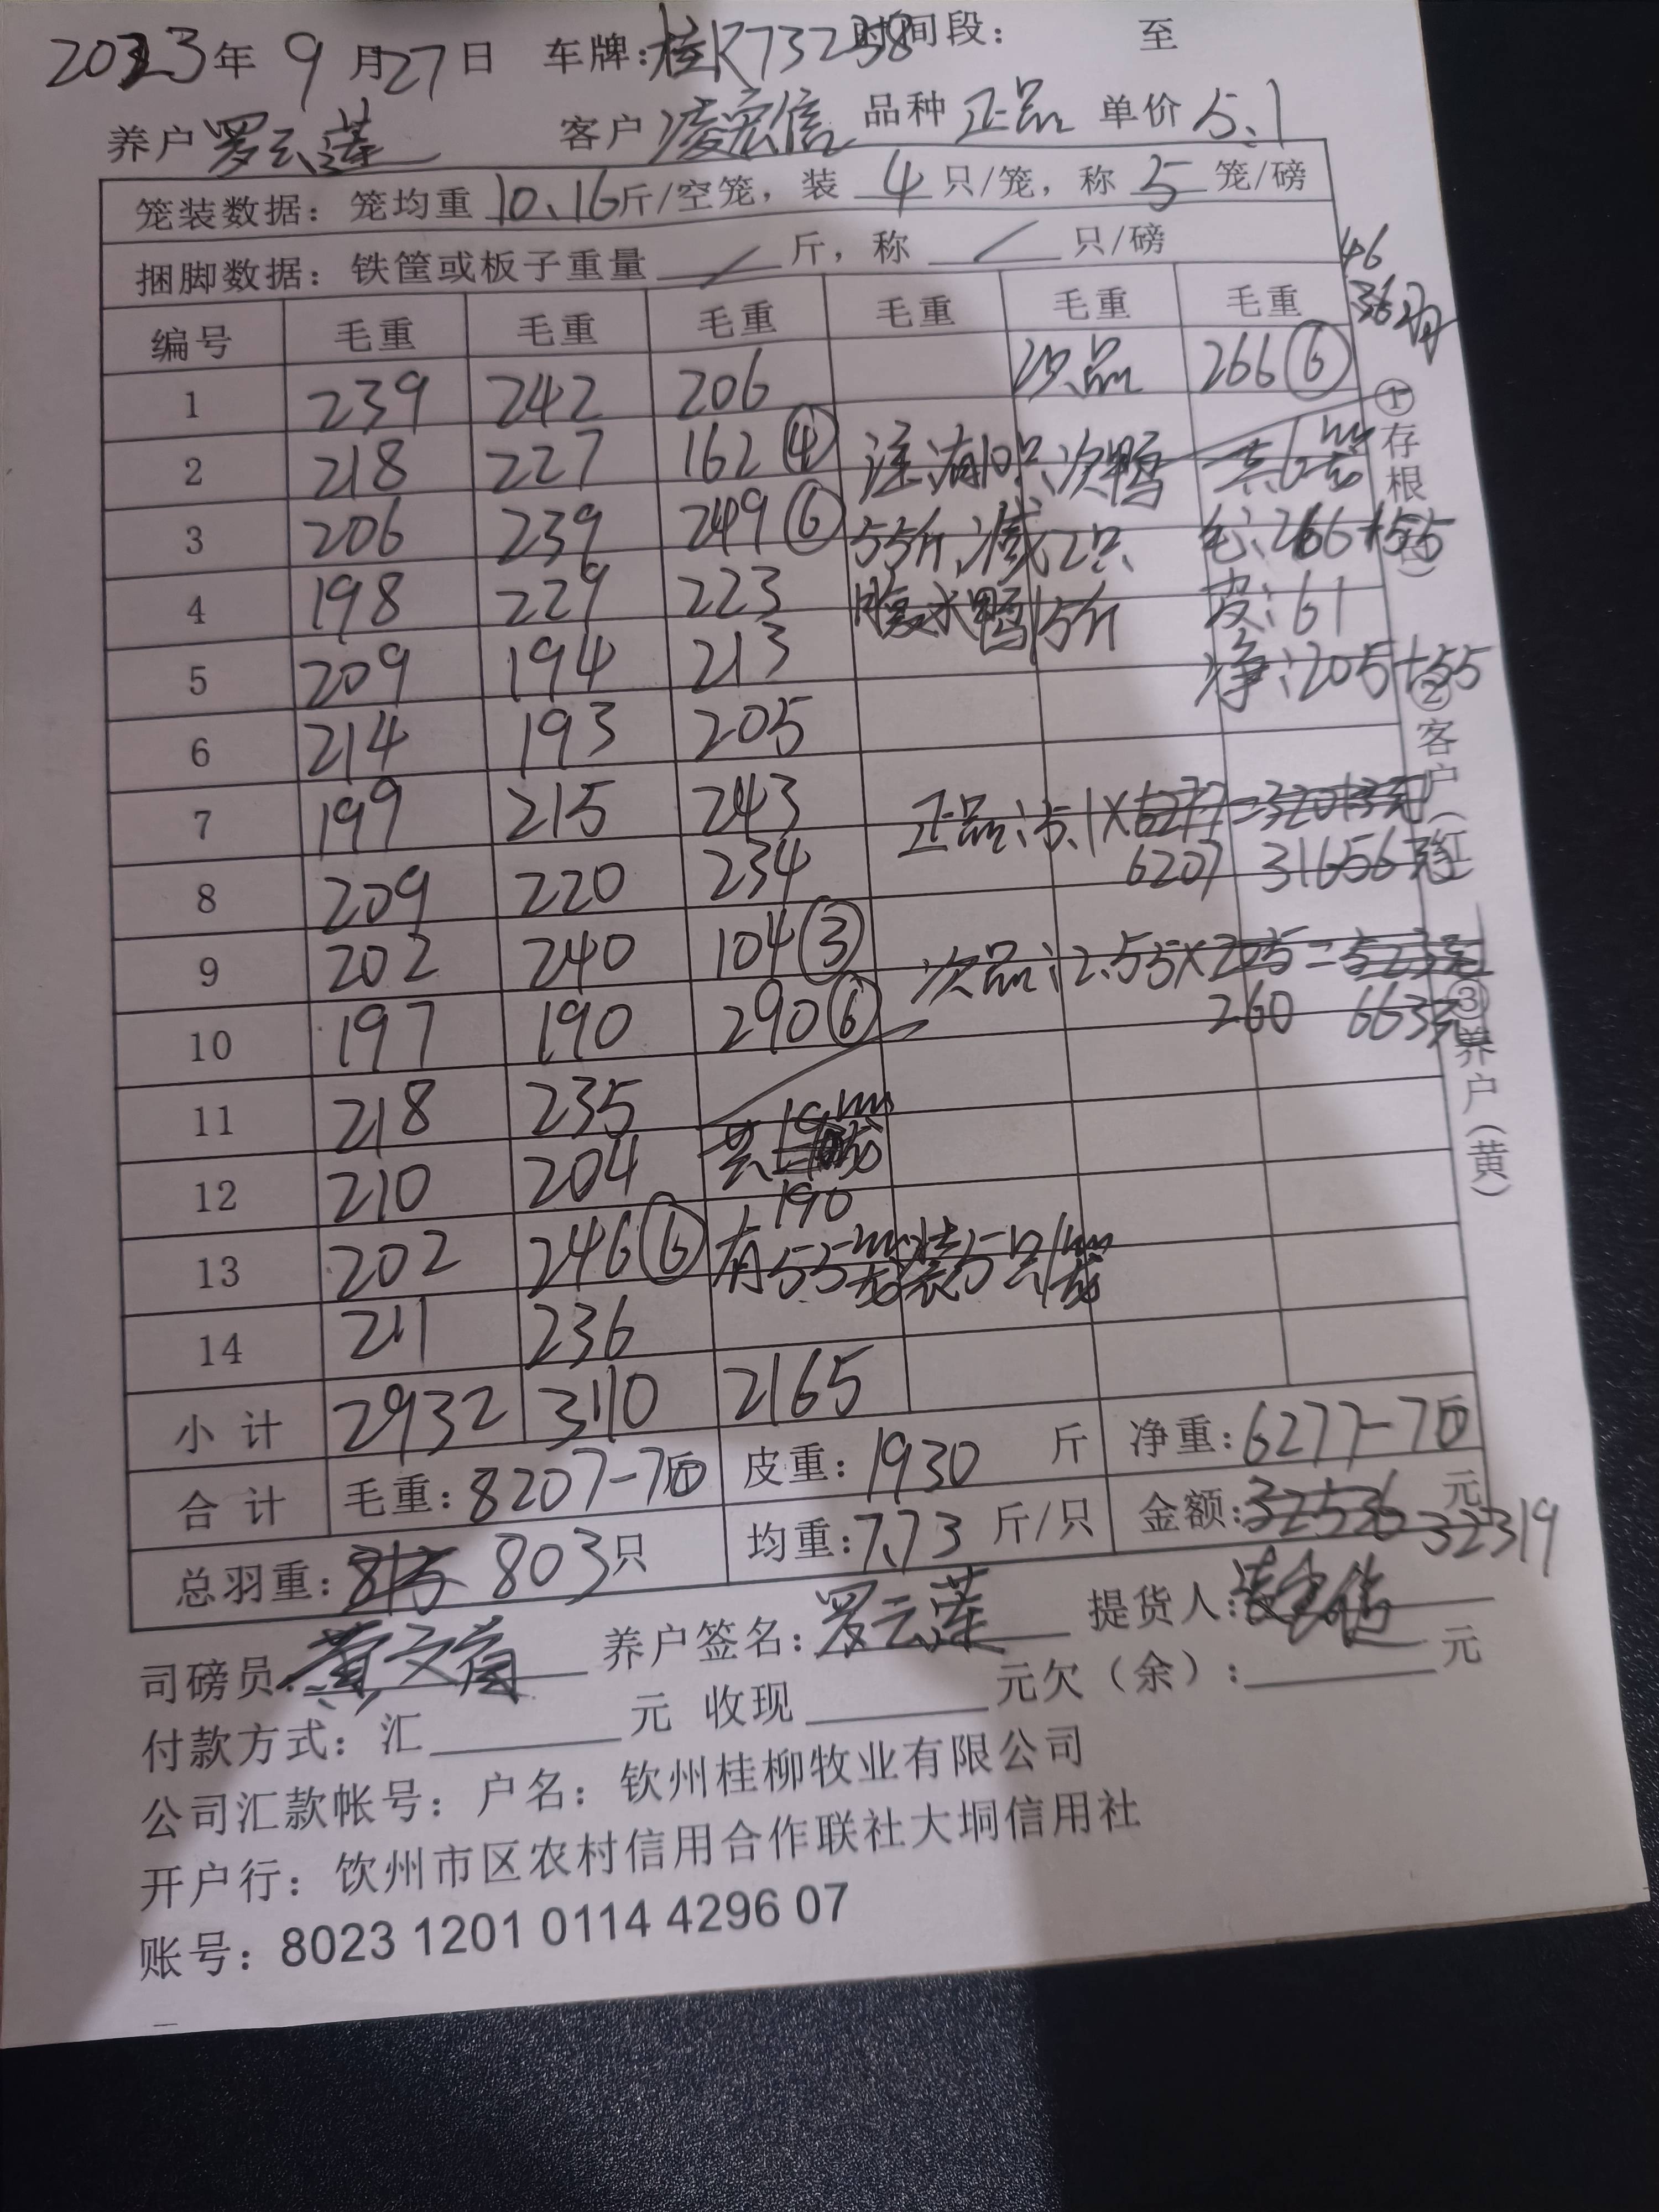 2023年 9月27日 车牌:桂K73238 时间段: 至
养户 罗云莲 客户 凌宏信 品种 正品 单价 5.1
笼装数据: 笼均重 10.16 斤/空笼, 装 4 只/笼, 称 5 笼/磅
捆脚数据: 铁筐或板子重量 / 斤, 称 / 只/磅
46
36羽
编号 毛重 毛重 毛重 毛重 毛重 毛重
1 239 242 206 次品 266⑥
2 218 227 162④ 注:有10只次鸭 共6笼
3 206 239 249⑥ 55斤,减2只 毛:266+55
4 198 229 223 腹水鸭15斤 皮:61
5 209 194 213 净:205+55
6 214 193 205
7 199 215 243 正品:5.1×6277=32013元
8 209 220 234 6207 31656元
9 202 240 104③ 次品:2.55×205=523元
10 197 190 290⑥ 260 663元
11 218 235
12 210 204 共
190
13 202 246⑥ 有55笼装5只/笼
14 211 236
小计 2932 3110 2165
合计 毛重:8207-70 皮重:1930 斤 净重:6277-70
总羽重: 815 803只 均重:7.73 斤/只 金额:32536 32319 元
司磅员: 黄文 养户签名: 罗云莲 提货人: 凌宏信
付款方式: 汇 元 收现 元欠(余): 元
公司汇款帐号: 户名: 钦州桂柳牧业有限公司
开户行: 钦州市区农村信用合作联社大垌信用社
账号: 8023 1201 0114 4296 07
①存根
②客户(红)
③养户(黄)